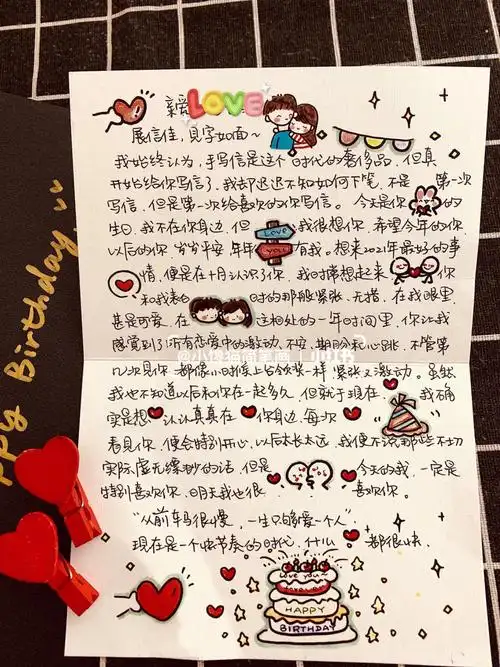 亲爱LOVE
展信佳，见字如面~
我始终认为，手写信是这个时代的奢侈品，但真
开始给你写信了，我却迟迟不知如何下笔，不是第一次
写信，但是第一次给喜欢的你写信。今天是你的
生日，我不在你身边，但我很想你，希望今年的你，
LOVE
以后的你 岁岁平安，年年有我。想来2021年最好的事
YOU
情，便是在十月认识了你，我时常想起来你
和我表白时的那般紧张，无措，在我眼里，
甚是可爱，在这相处的一年时间里，你让我
感觉到了所有恋爱中的激动，不安，期盼和心跳，不管第
几次见你，都像小时候上台领奖一样，紧张又激动。虽然
我也不知道以后和你在一起多久，但就于现在，我确
实是想认认真真在你身边，每次
看见你，便会特别开心，以后太长太远，我便不说那些不切
实际虚无缥缈的话，但是今天的我，一定是
特别喜欢你，明天我也很喜欢你。
“从前车马很慢，一生只够爱一个人”
现在是一个快节奏的时代，什么都很快，
LOVE YOU
HAPPY
BIRTHDAY
ppy Birthday
@小馋猫简笔画 小红书